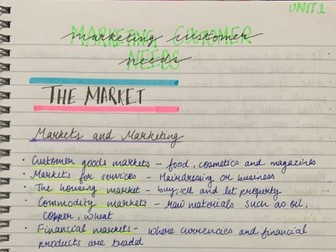 UNIT 1
marketing customer needs
MARKETING CUSTOMER
NEEDS
THE MARKET
Markets and Marketing
• Customer goods markets - food, cosmetics and magazines
• Markets for services - Hairdressing or business
• The housing market - buy, sell and let property
• Commodity markets - raw materials such as oil,
copper, wheat
• Financial markets - where currencies and financial
products are traded